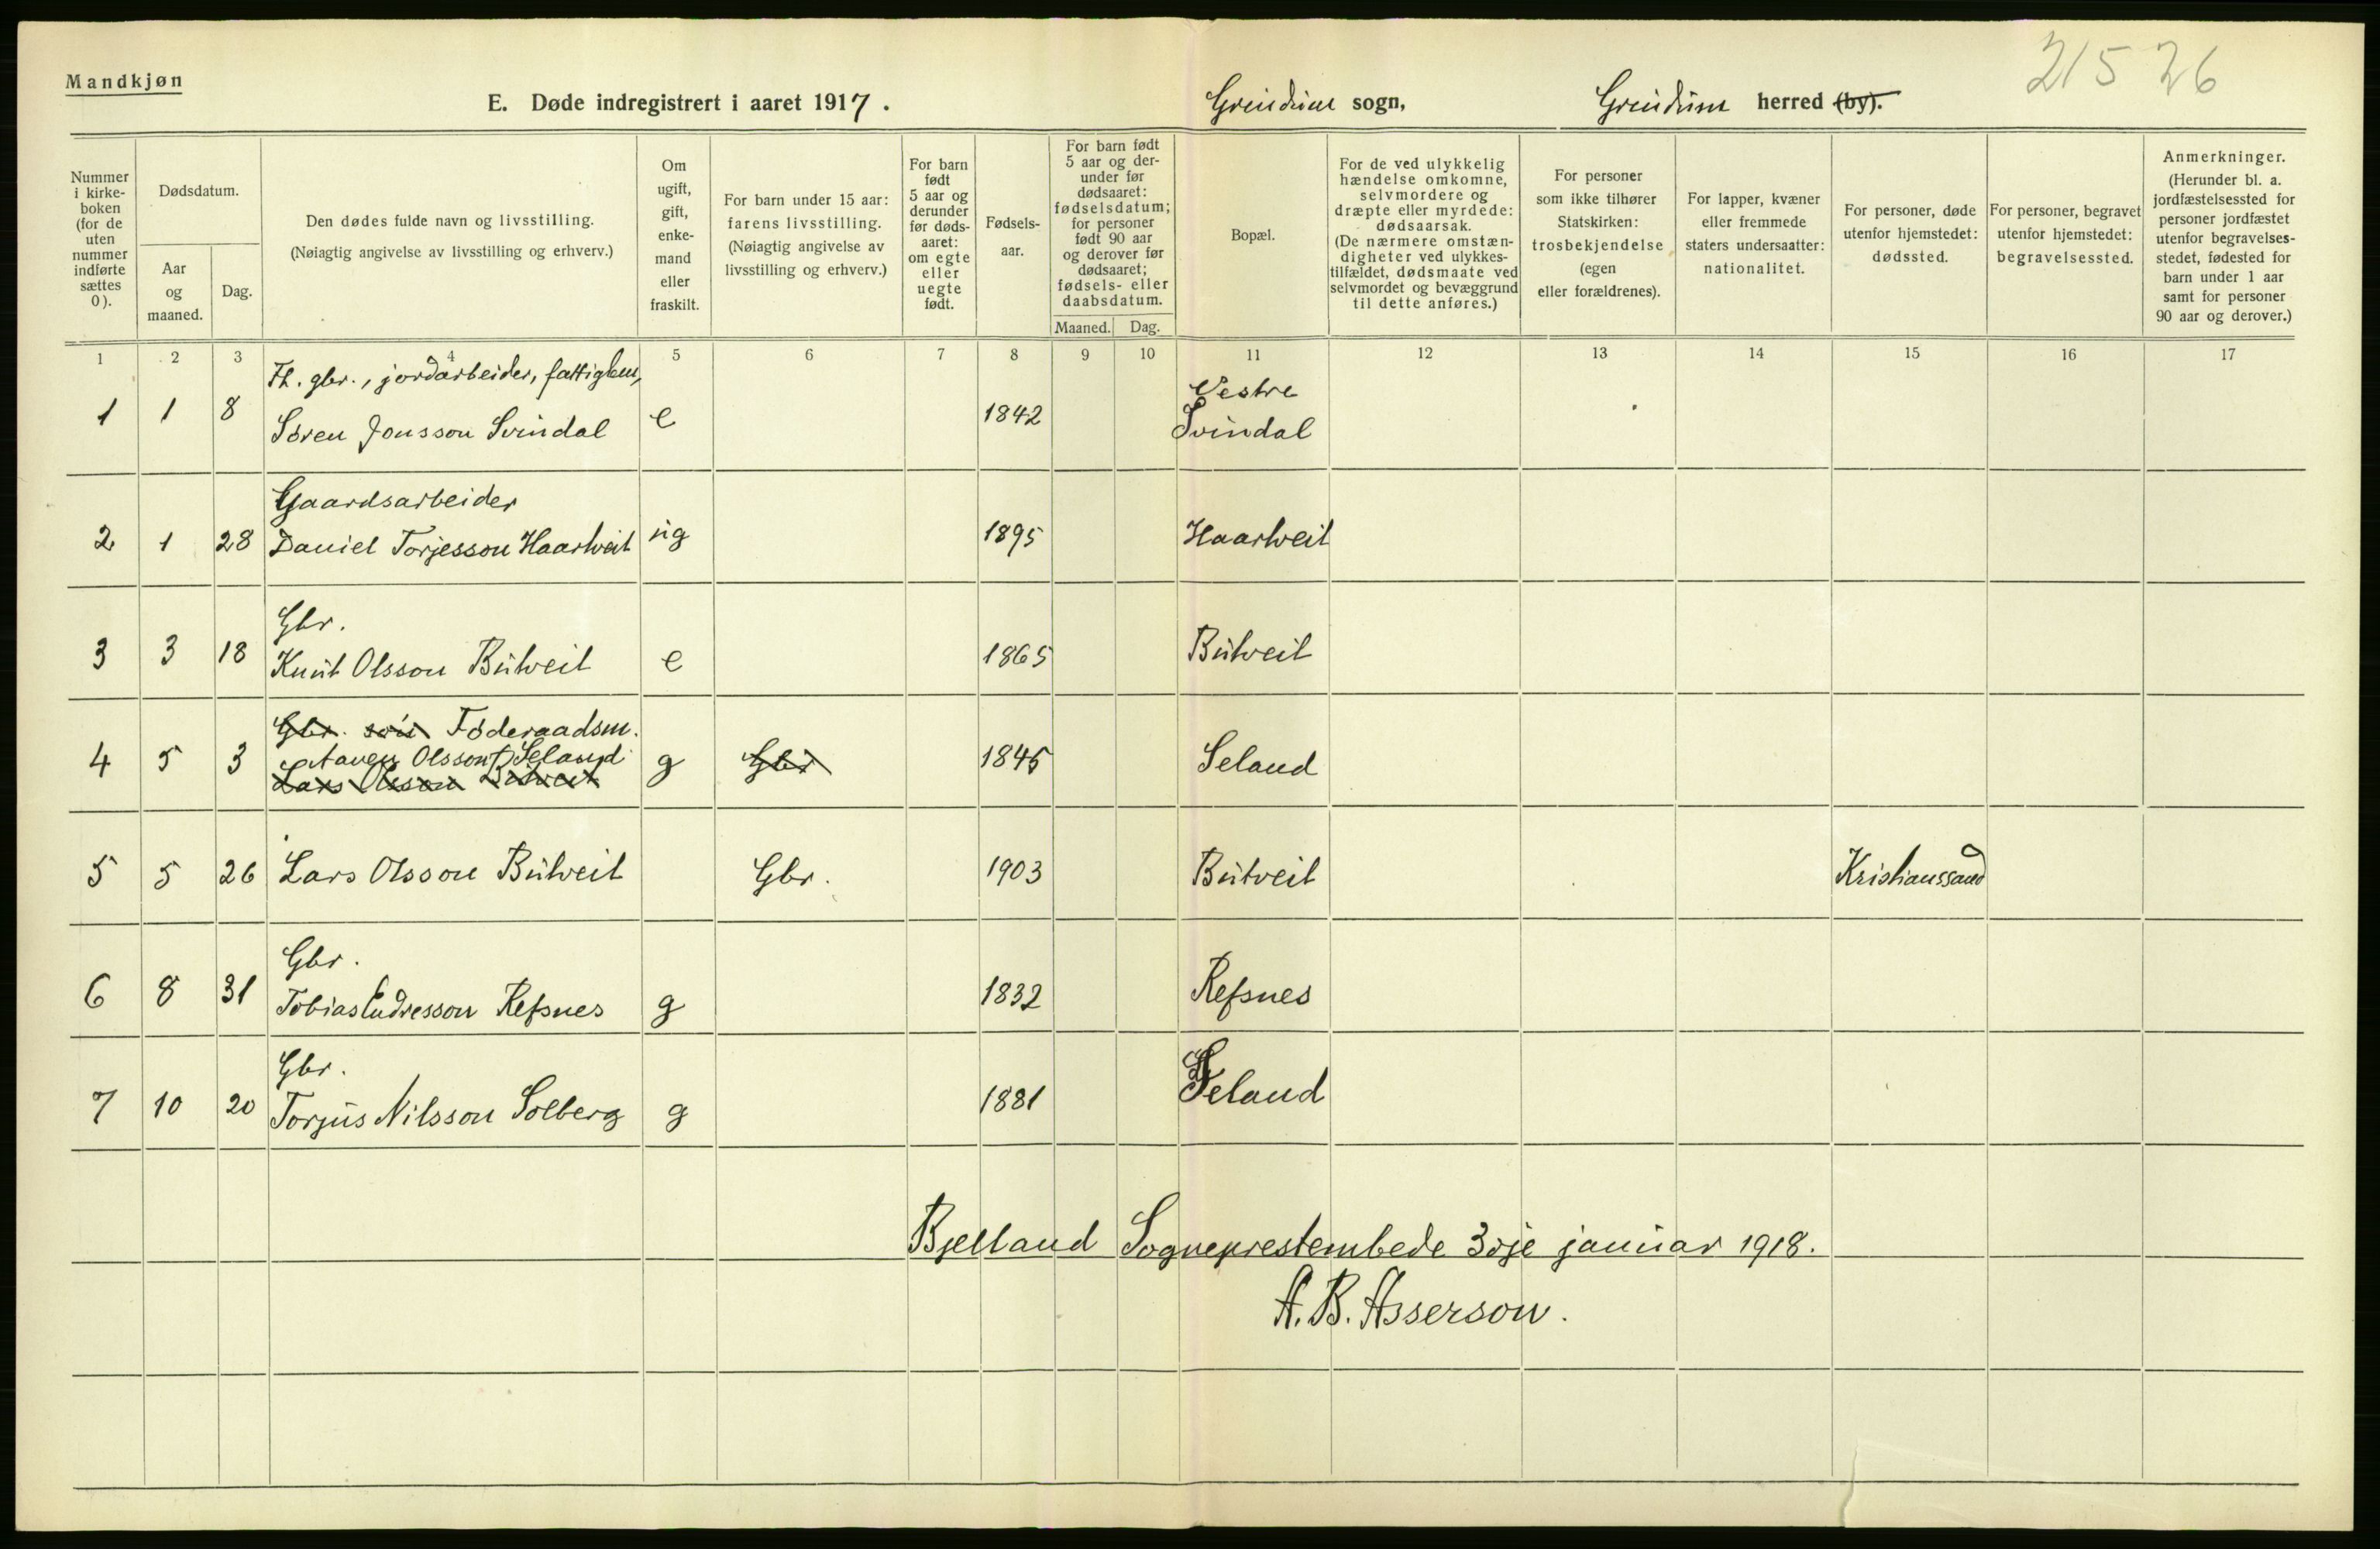 Mandkjøn
21526
E. Døde indregistrert i aaret 1917. Greindum sogn, Greindum herred (by).
Nummer i kirke-boken (for de uten nummer indførte sættes 0).
Dødsdatum.
Aar og maaned.
Dag.
Den dødes fulde navn og livsstilling.
(Nøiagtig angivelse av livsstilling og erhverv.)
Om ugift, gift, enke-mand eller fraskilt.
For barn under 15 aar: farens livsstilling.
(Nøiagtig angivelse av livsstilling og erhverv.)
For barn født 5 aar og derunder før døds-aaret: om egte eller uegte født.
Fødsels-aar.
For barn født 5 aar og der-under før dødsaaret: fødselsdatum; for personer født 90 aar og derover før dødsaaret; fødsels- eller daabsdatum.
Maaned. Dag.
Bopæl.
For de ved ulykkelig hændelse omkomne, selvmordere og dræpte eller myrdede: dødsaarsak.
(De nærmere omstæn-digheter ved ulykkes-tilfældet, dødsmaate ved selvmordet og bevæggrund til dette anføres.)
For personer som ikke tilhører Statskirken: trosbekjendelse (egen eller forældrenes).
For lapper, kvæner eller fremmede staters undersaatter: nationalitet.
For personer, døde utenfor hjemstedet: dødssted.
For personer, begravet utenfor hjemstedet: begravelsessted.
Anmerkninger.
(Herunder bl. a. jordfæstelsessted for personer jordfæstet utenfor begravelses-stedet, fødested for barn under 1 aar samt for personer 90 aar og derover.)
1 2 3 4 5 6 7 8 9 10 11 12 13 14 15 16 17
Fh. gbr., jordarbeider, fattiglem, Vestre
1 1 8 Sören Jonsson Svindal e 1842 Svindal
Gaardsarbeider
2 1 28 Daniel Torjesson Haartveit ug 1895 Haartveit
Gbr.
3 3 18 Knut Olsson Butveit e 1865 Butveit
Gbr. sön Föderaadsm.
4 5 3 Aanen Olsson Seland g Gbr 1845 Seland
Lars Olsson Butveit
5 5 26 Lars Olsson Butveit Gbr. 1903 Butveit Kristianssand
Gbr.
6 8 31 Tobias Endresson Refsnes g 1832 Refsnes
Gbr.
7 10 20 Torjus Nilsson Solberg g 1881 Seland
Bjelland Sogneprestembede 3dje januar 1918.
A. B. Asserson.